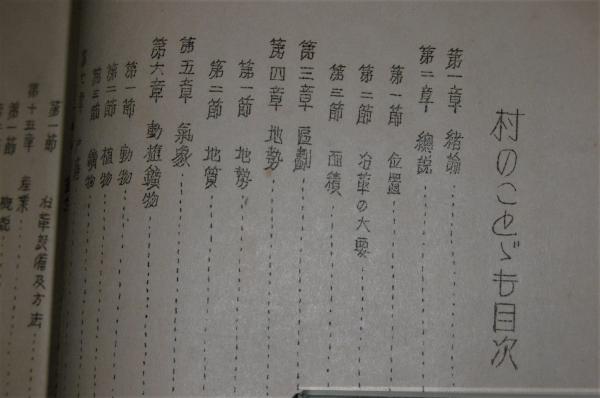 村のことゞも目次
第一章 緒論
第二章 總説
第一節 位置
第二節 沿革の大要
第三節 面積
第三章 區劃
第四章 地勢
第一節 地勢
第二節 地質
第五章 氣象
第六章 動植鑛物
第一節 動物
第二節 植物
第三節 鑛物
第一節 沿革設備及方法
第十五章 産業
第一節 概説